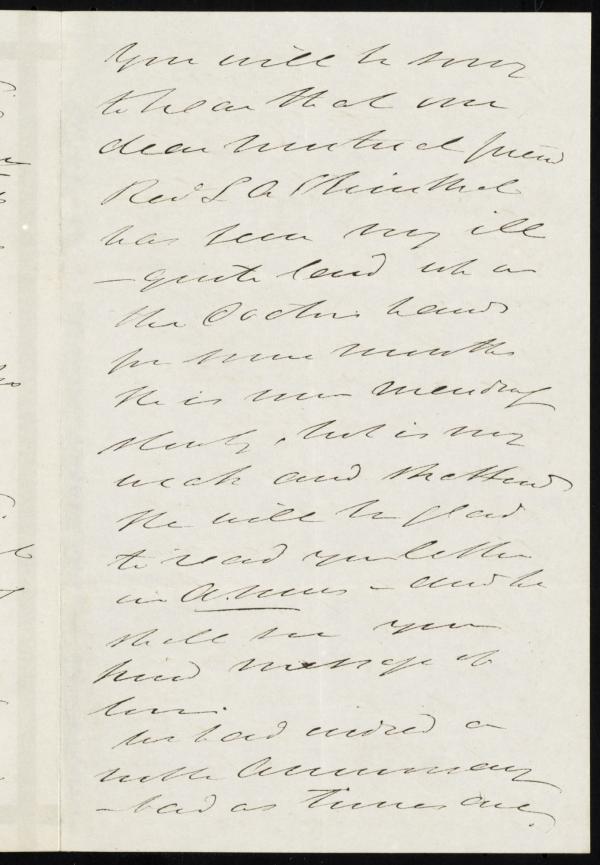 You will be sorry
to hear that our
dear mutual friend
Revd S A Steinthal
has been very ill
– quite laid up in
the Doctors hands
for some months
He is now mending
slowly, but is very
weak and shattered
He will be glad
to read your letter
in A. News – and he
shall see your
kind message of
love.
We had indeed a
noble Anniversary
– bad as times are.